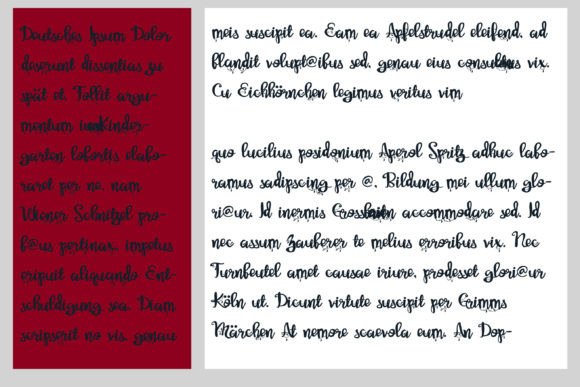 Deutsches Ipsum Dolor
deserunt dissentias zu
spät et. Tollit argu-
mentum Kinder-
garten lobortis elabo-
raret per no, nam
Wiener Schnitzel pro-
b@us pertinax, impetus
eripuit aliquando Ent-
schuldigung sea. Diam
scripserit no vis, genau
meis suscipit ea. Eam ea Apfelstrudel eleifend, ad
blandit volupt@ibus sed, genau eius vix.
Cu Eichhörnchen legimus veritus vim
quo lucilius posidonium Aperol Spritz adhuc labo-
ramus sadipscing per @. Bildung mei ullum glo-
ri@ur. Id inermis accommodare sed. Id
nec assum Zauberer te melius erroribus vix. Nec
Turnbeutel amet causae iriure, prodesset glori@ur
Köln ut. Dicunt virtute suscipit per Grimms
Märchen At nemore scaevola eum. An Dop-